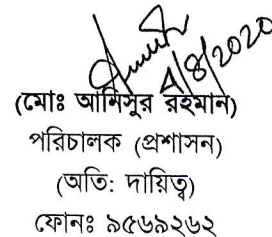 4/8/2020
(মোঃ আমিসুর রহমান)
পরিচালক (প্রশাসন)
(অতি: দায়িত্ব)
ফোনঃ ৯৫৬৯২৬২